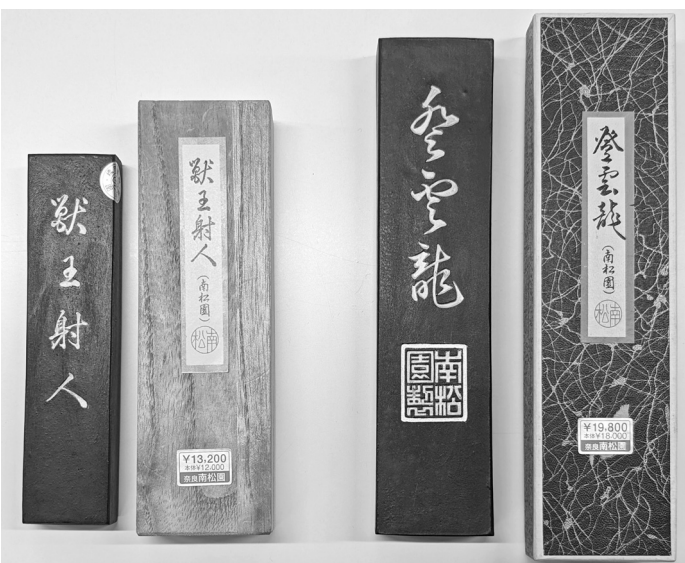 獣王射人
獣王射人
(南松園)
南松
¥13,200
本体¥12,000
奈良南松園
登雲龍
南松園製
登雲龍
(南松園)
南松
¥19,800
本体¥18,000
奈良南松園